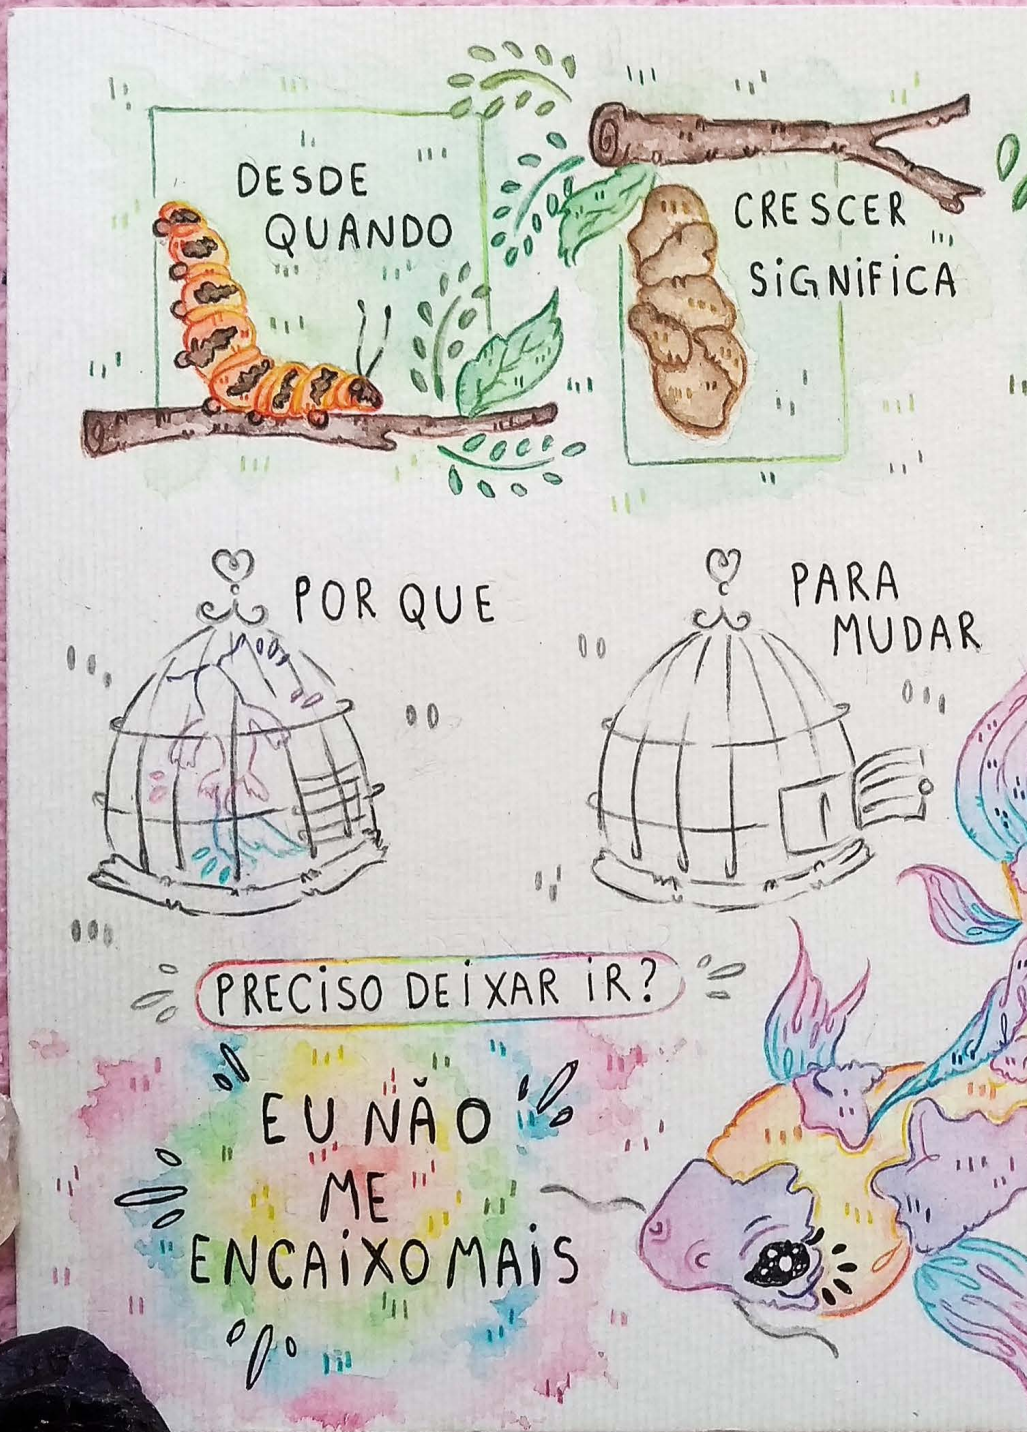 DESDE
QUANDO
CRESCER
SiGNiFiCA
POR QUE
PARA
MUDAR
PRECiSO DEiXAR iR?
EU NÃO
ME
ENCAiXO MAiS